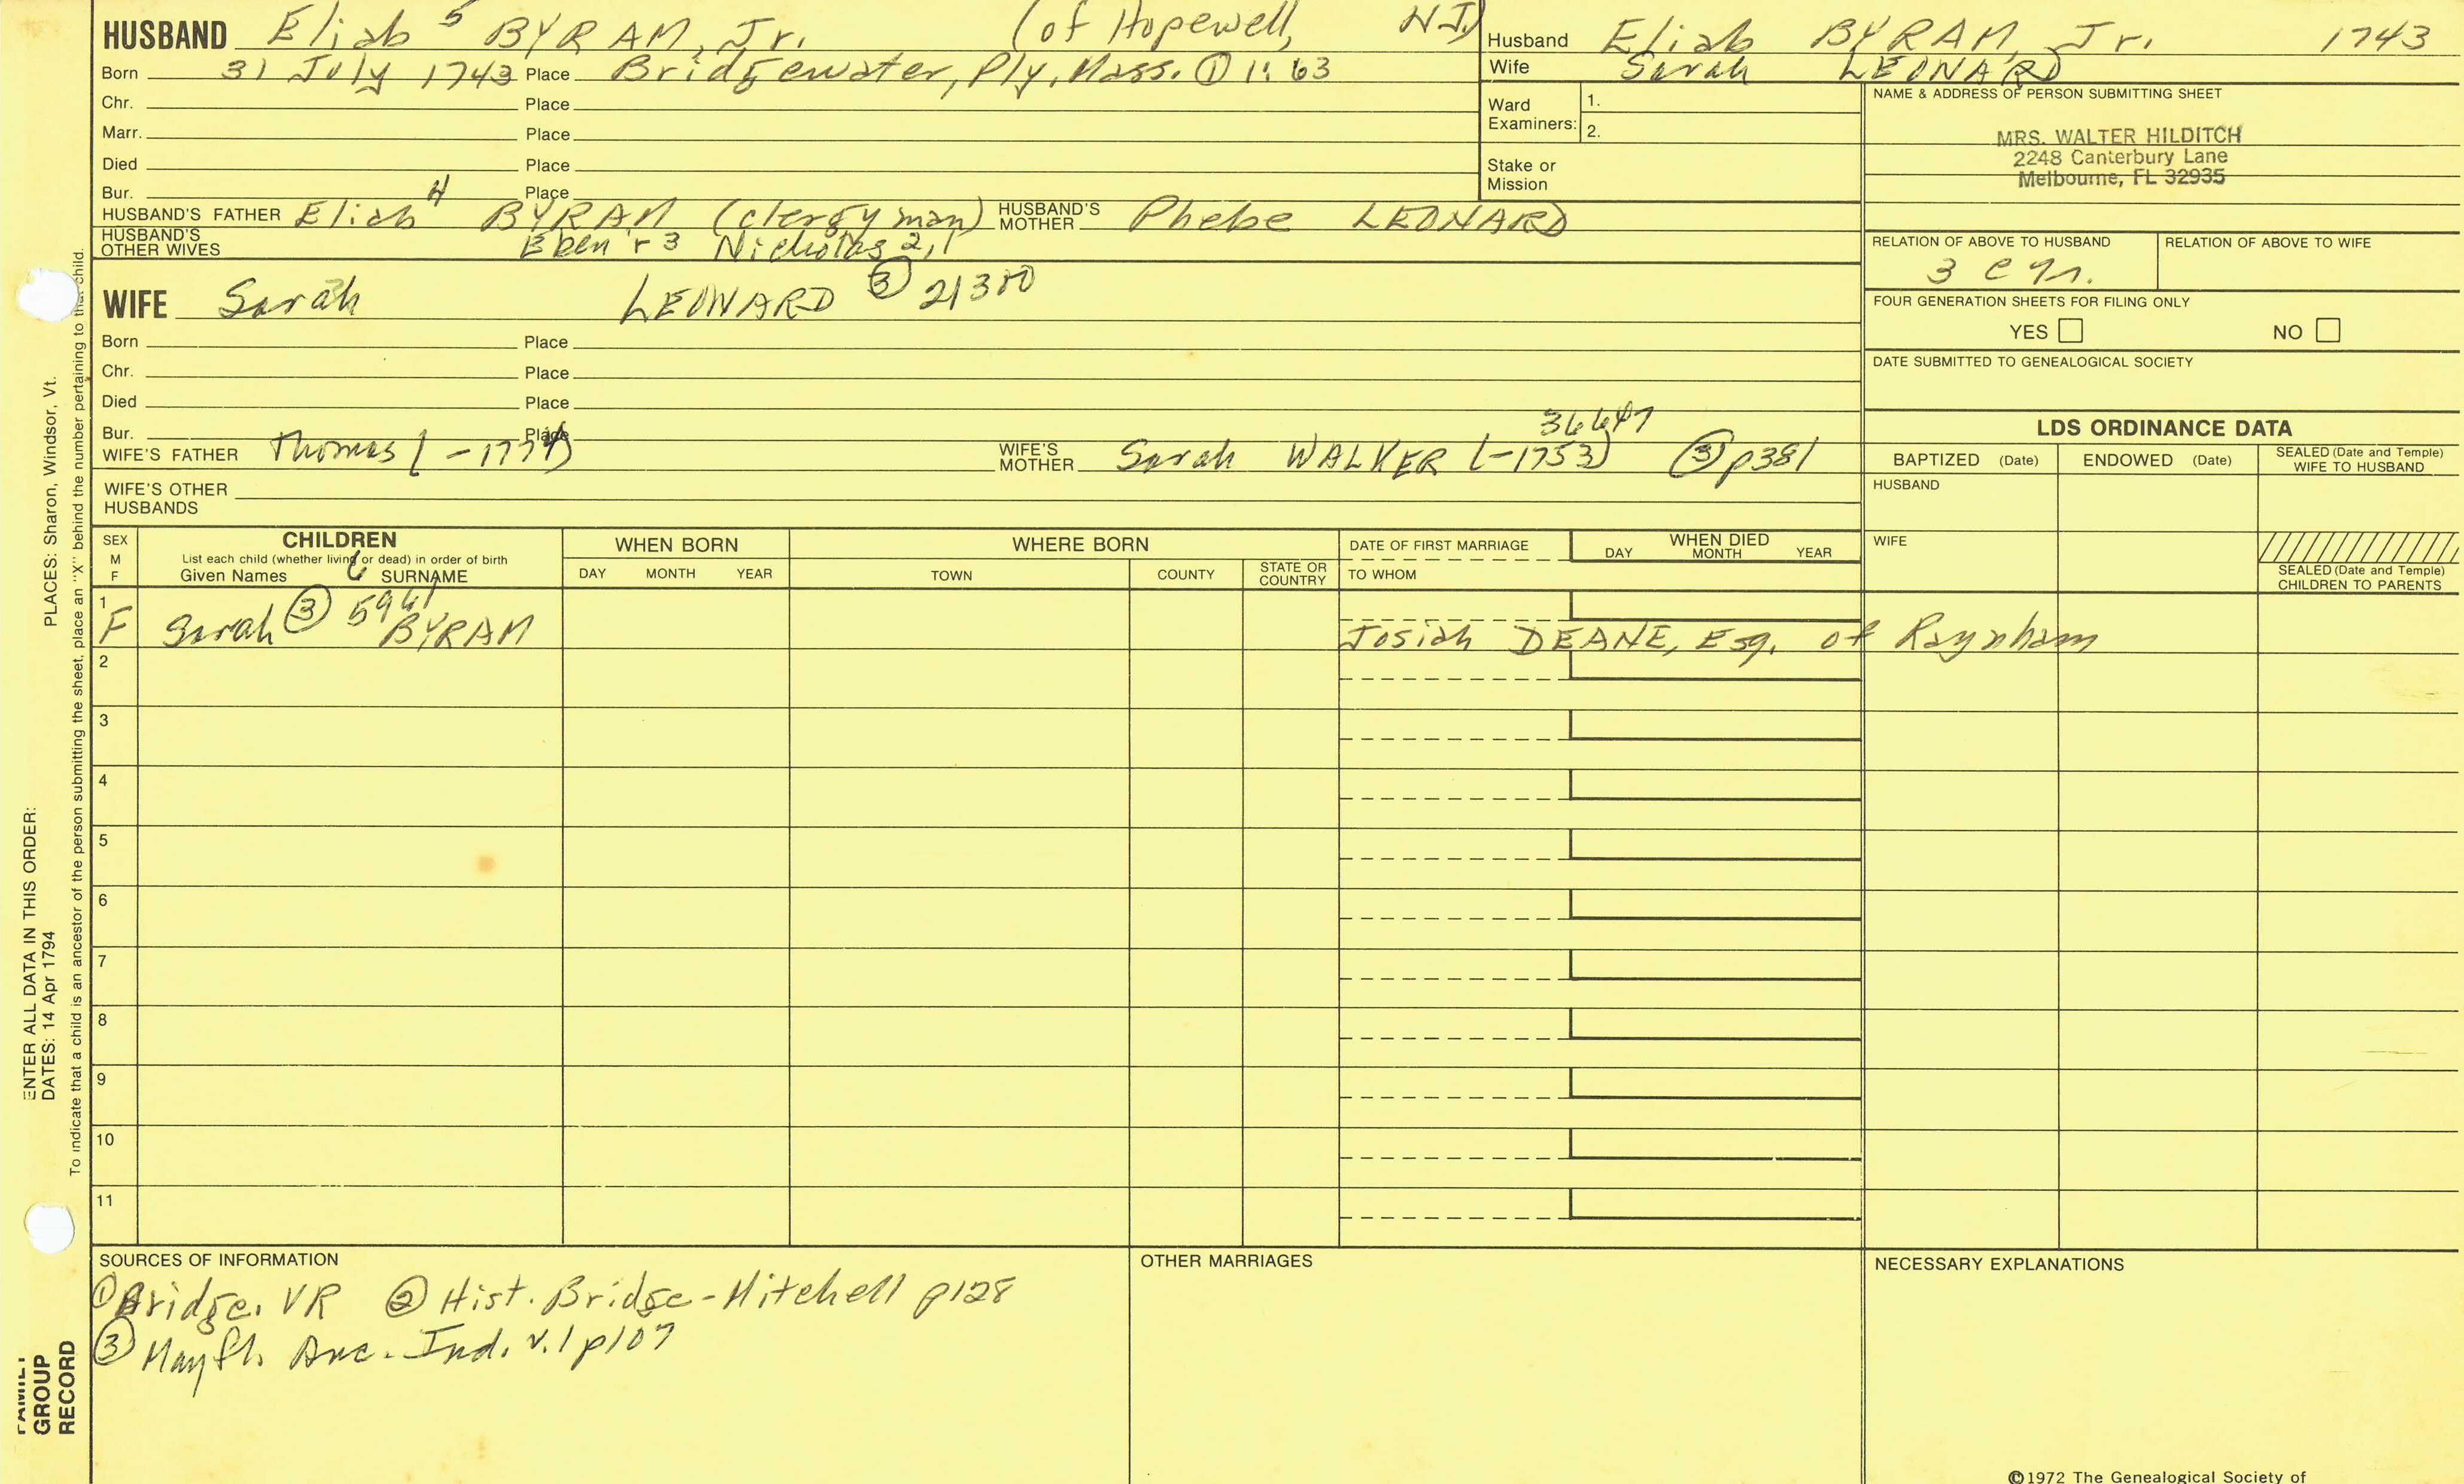 HUSBAND Eliab 5 BYRAM, Jr. (of Hopewell, NJ)
Born 31 July 1743 Place Bridgewater, Ply, Mass. ① 1:63
Chr. Place
Marr. Place
Died Place
Bur. Place
HUSBAND'S FATHER Eliab 4 BYRAM (clergyman) HUSBAND'S MOTHER Phebe LEONARD
HUSBAND'S OTHER WIVES Eben'r 3 Nicholas 2,1
WIFE Sarah LEONARD ③ 21380
Born Place
Chr. Place
Died Place
Bur. Place
36647
WIFE'S FATHER Thomas ( -1774) WIFE'S MOTHER Sarah WALKER (-1753) ③ p381
WIFE'S OTHER HUSBANDS
Husband Eliab BYRAM, Jr. 1743
Wife Sarah LEONARD
Ward Examiners: 1.
2.
Stake or Mission
NAME & ADDRESS OF PERSON SUBMITTING SHEET
MRS. WALTER HILDITCH
2248 Canterbury Lane
Melbourne, FL 32935
RELATION OF ABOVE TO HUSBAND RELATION OF ABOVE TO WIFE
3 c 9n.
FOUR GENERATION SHEETS FOR FILING ONLY
YES NO
DATE SUBMITTED TO GENEALOGICAL SOCIETY
LDS ORDINANCE DATA
BAPTIZED (Date) ENDOWED (Date) SEALED (Date and Temple) WIFE TO HUSBAND
HUSBAND
WIFE
SEALED (Date and Temple) CHILDREN TO PARENTS
SEX M F
CHILDREN
List each child (whether living or dead) in order of birth
Given Names SURNAME
WHEN BORN
DAY MONTH YEAR
WHERE BORN
TOWN COUNTY STATE OR COUNTRY
DATE OF FIRST MARRIAGE
TO WHOM
WHEN DIED
DAY MONTH YEAR
1 F Sarah ③ 5961 BYRAM Josiah DEANE, Esq. of Raynham
2
3
4
5
6
7
8
9
10
11
SOURCES OF INFORMATION
① Bridge. VR ② Hist. Bridge-Mitchell p128
③ Mayfl. Anc. Ind. v.1 p107
OTHER MARRIAGES
NECESSARY EXPLANATIONS
©1972 The Genealogical Society of
ENTER ALL DATA IN THIS ORDER:
DATES: 14 Apr 1794
PLACES: Sharon, Windsor, Vt.
To indicate that a child is an ancestor of the person submitting the sheet, place an "X" behind the number pertaining to that child.
FAMILY
GROUP
RECORD